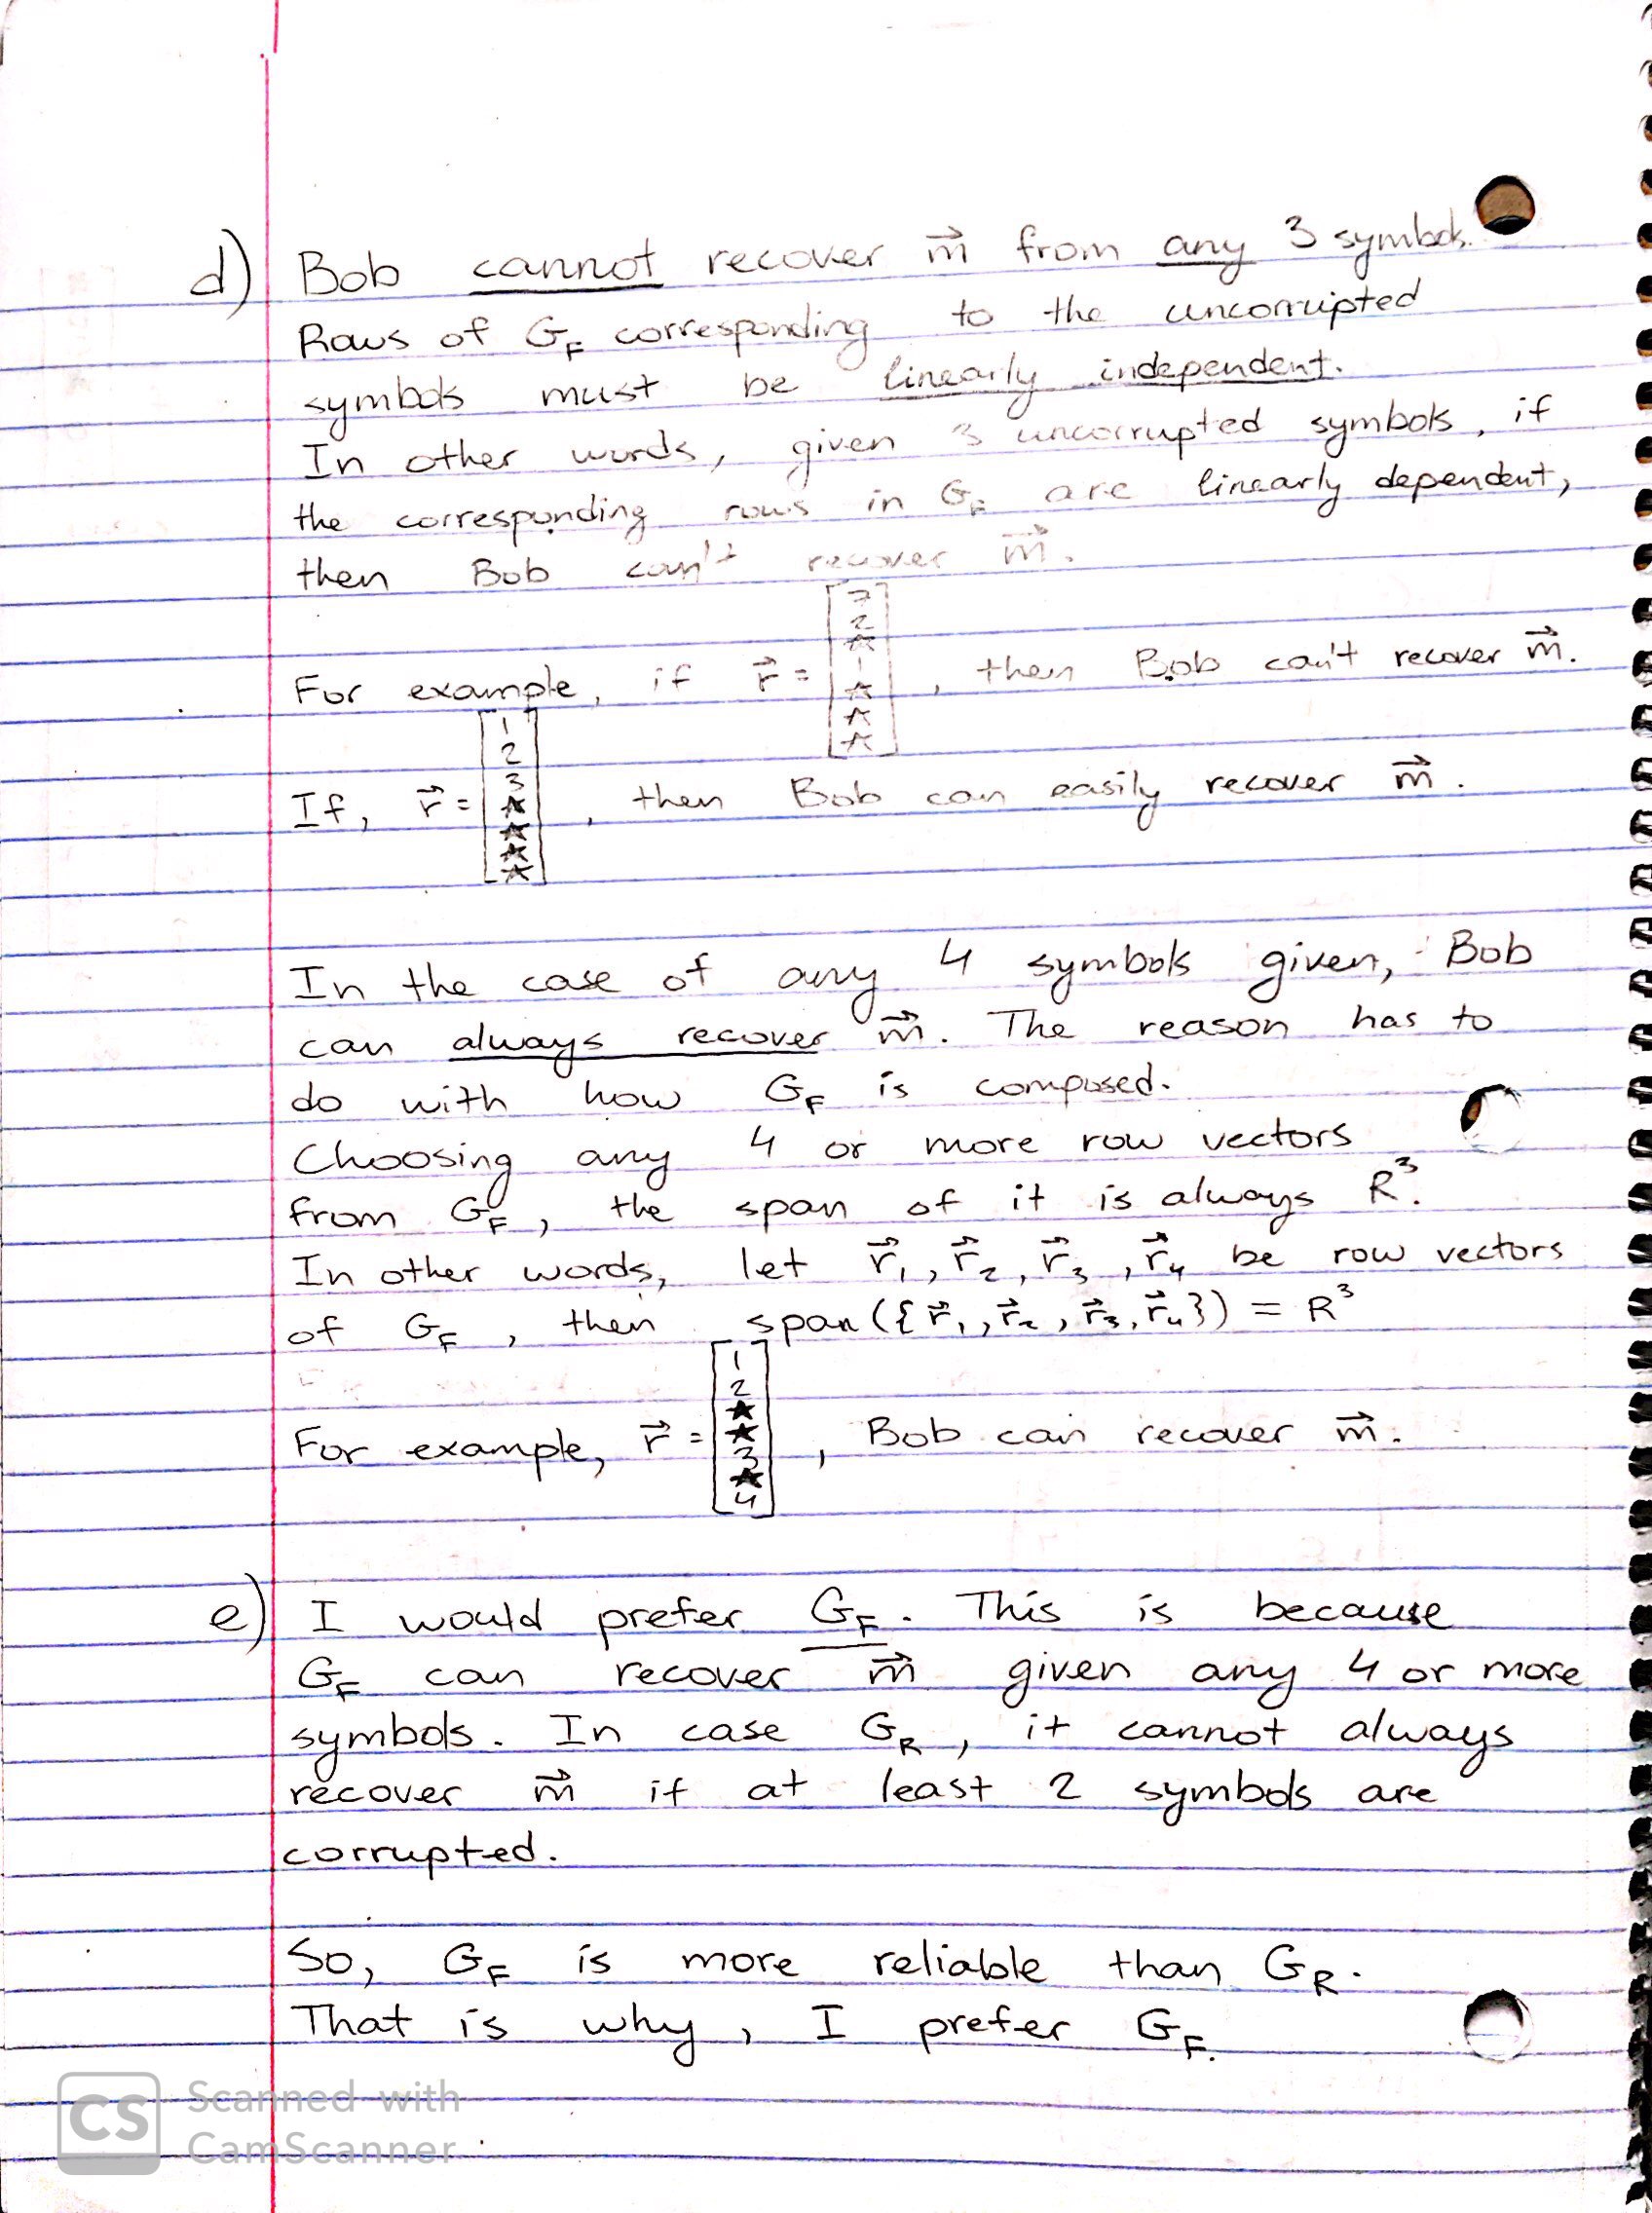 d) Bob cannot recover m⃗ from any 3 symbols.
Rows of G_F corresponding to the uncorrupted
symbols must be linearly independent.
In other words, given 3 uncorrupted symbols, if
the corresponding rows in G_F are linearly dependent,
then Bob can't recover m⃗.
For example, if r⃗ = [7 2 ☆ 1 ☆ ☆ ☆], then Bob can't recover m⃗.
If, r⃗ = [1 2 3 ★ ★ ★ ★], then Bob can easily recover m⃗.
In the case of any 4 symbols given, Bob
can always recover m⃗. The reason has to
do with how G_F is composed.
Choosing any 4 or more row vectors
from G_F, the span of it is always R³.
In other words, let r⃗₁, r⃗₂, r⃗₃, r⃗₄ be row vectors
of G_F, then span({r⃗₁, r⃗₂, r⃗₃, r⃗₄}) = R³
For example, r⃗ = [1 2 ★ ★ 3 ★ 4], Bob can recover m⃗.
e) I would prefer G_F. This is because
G_F can recover m⃗ given any 4 or more
symbols. In case G_R, it cannot always
recover m⃗ if at least 2 symbols are
corrupted.
So, G_F is more reliable than G_R.
That is why, I prefer G_F.
CS Scanned with
CamScanner